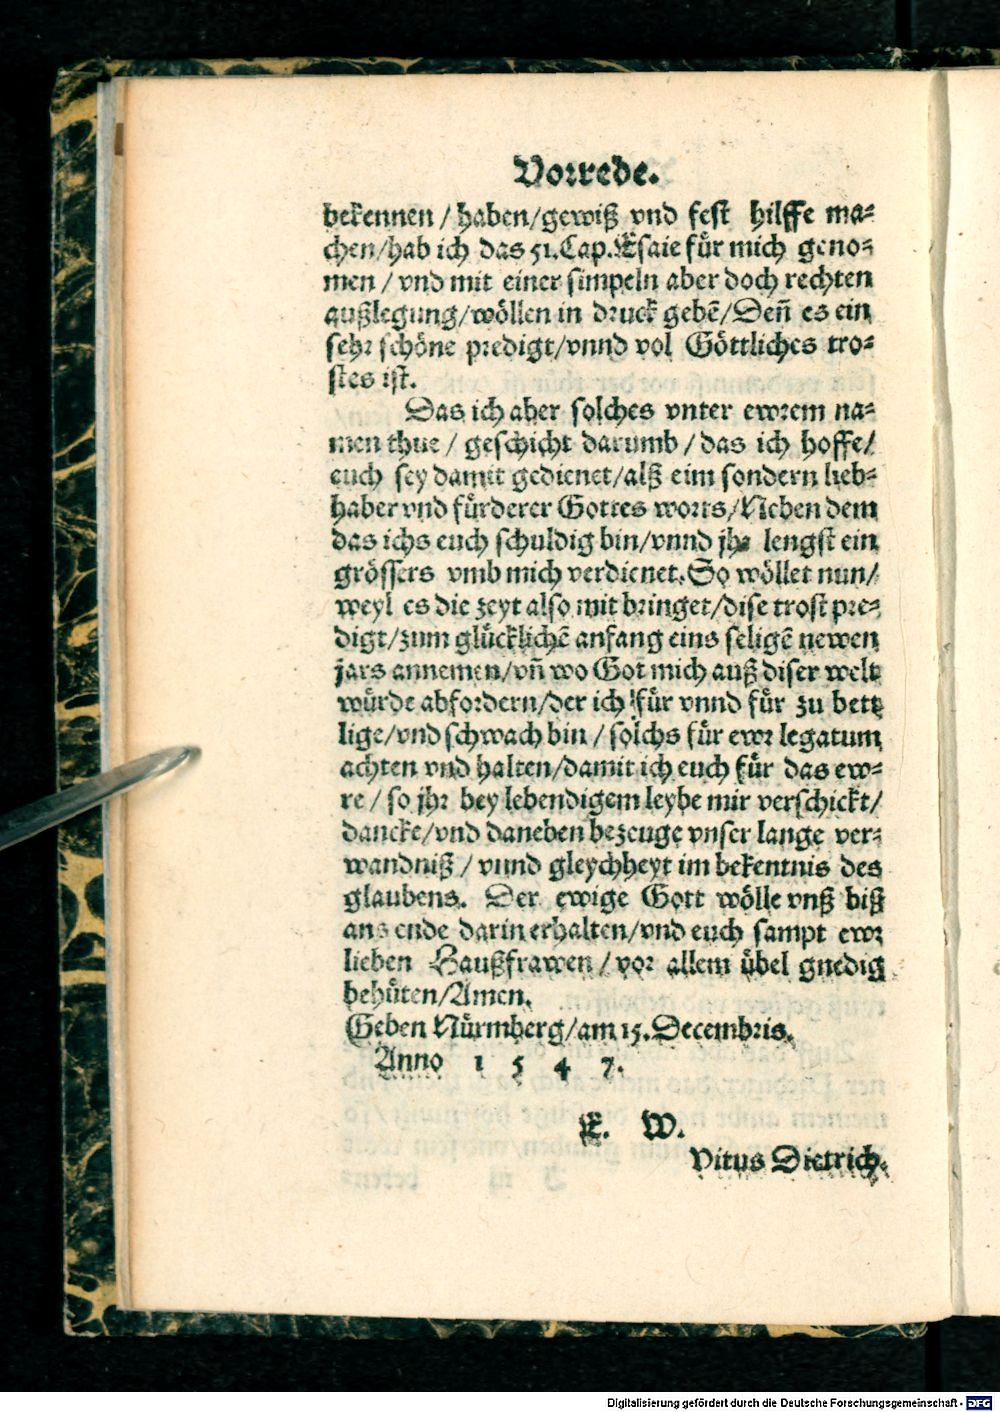 Vorrede.
bekennen / haben/gewiß vnd fest hilffe ma⸗
chen/hab ich das 51. Cap. Esaie für mich geno⸗
men / vnd mit einer simpeln aber doch rechten
außlegung/wöllen in druck gebē/Deñ es ein
sehr schöne predigt/vnnd vol Göttliches tro⸗
stes ist.
Das ich aber solches vnter ewrem na⸗
men thue / geschicht darumb / das ich hoffe/
euch sey damit gedienet/alß eim sondern lieb⸗
haber vnd fürderer Gottes worts/Neben dem
das ichs euch schuldig bin/vnnd jhr lengst ein
grössers vmb mich verdienet. So wöllet nun/
weyl es die zeyt also mit bringet/dise trost pre⸗
digt/zum glücklichē anfang eins seligē newen
jars annemen/vñ wo Got mich auß diser welt
würde abfordern/der ich für vnnd für zu bett
lige/vnd schwach bin / solchs für ewr legatum
achten vnd halten/damit ich euch für das ew⸗
re / so jhr bey lebendigem leybe mir verschickt/
dancke/vnd daneben bezeuge vnser lange ver⸗
wandniß / vnnd gleychheyt im bekentnis des
glaubens. Der ewige Gott wölle vnß biß
ans ende darin erhalten/vnd euch sampt ewr
lieben Haußfrawen / vor allem übel gnedig
behüten/Amen.
Geben Nürmberg/am 15. Decembris.
Anno 1 5 4 7.
E. W.
Vitus Dietrich.
Digitalisierung gefördert durch die Deutsche Forschungsgemeinschaft - DFG